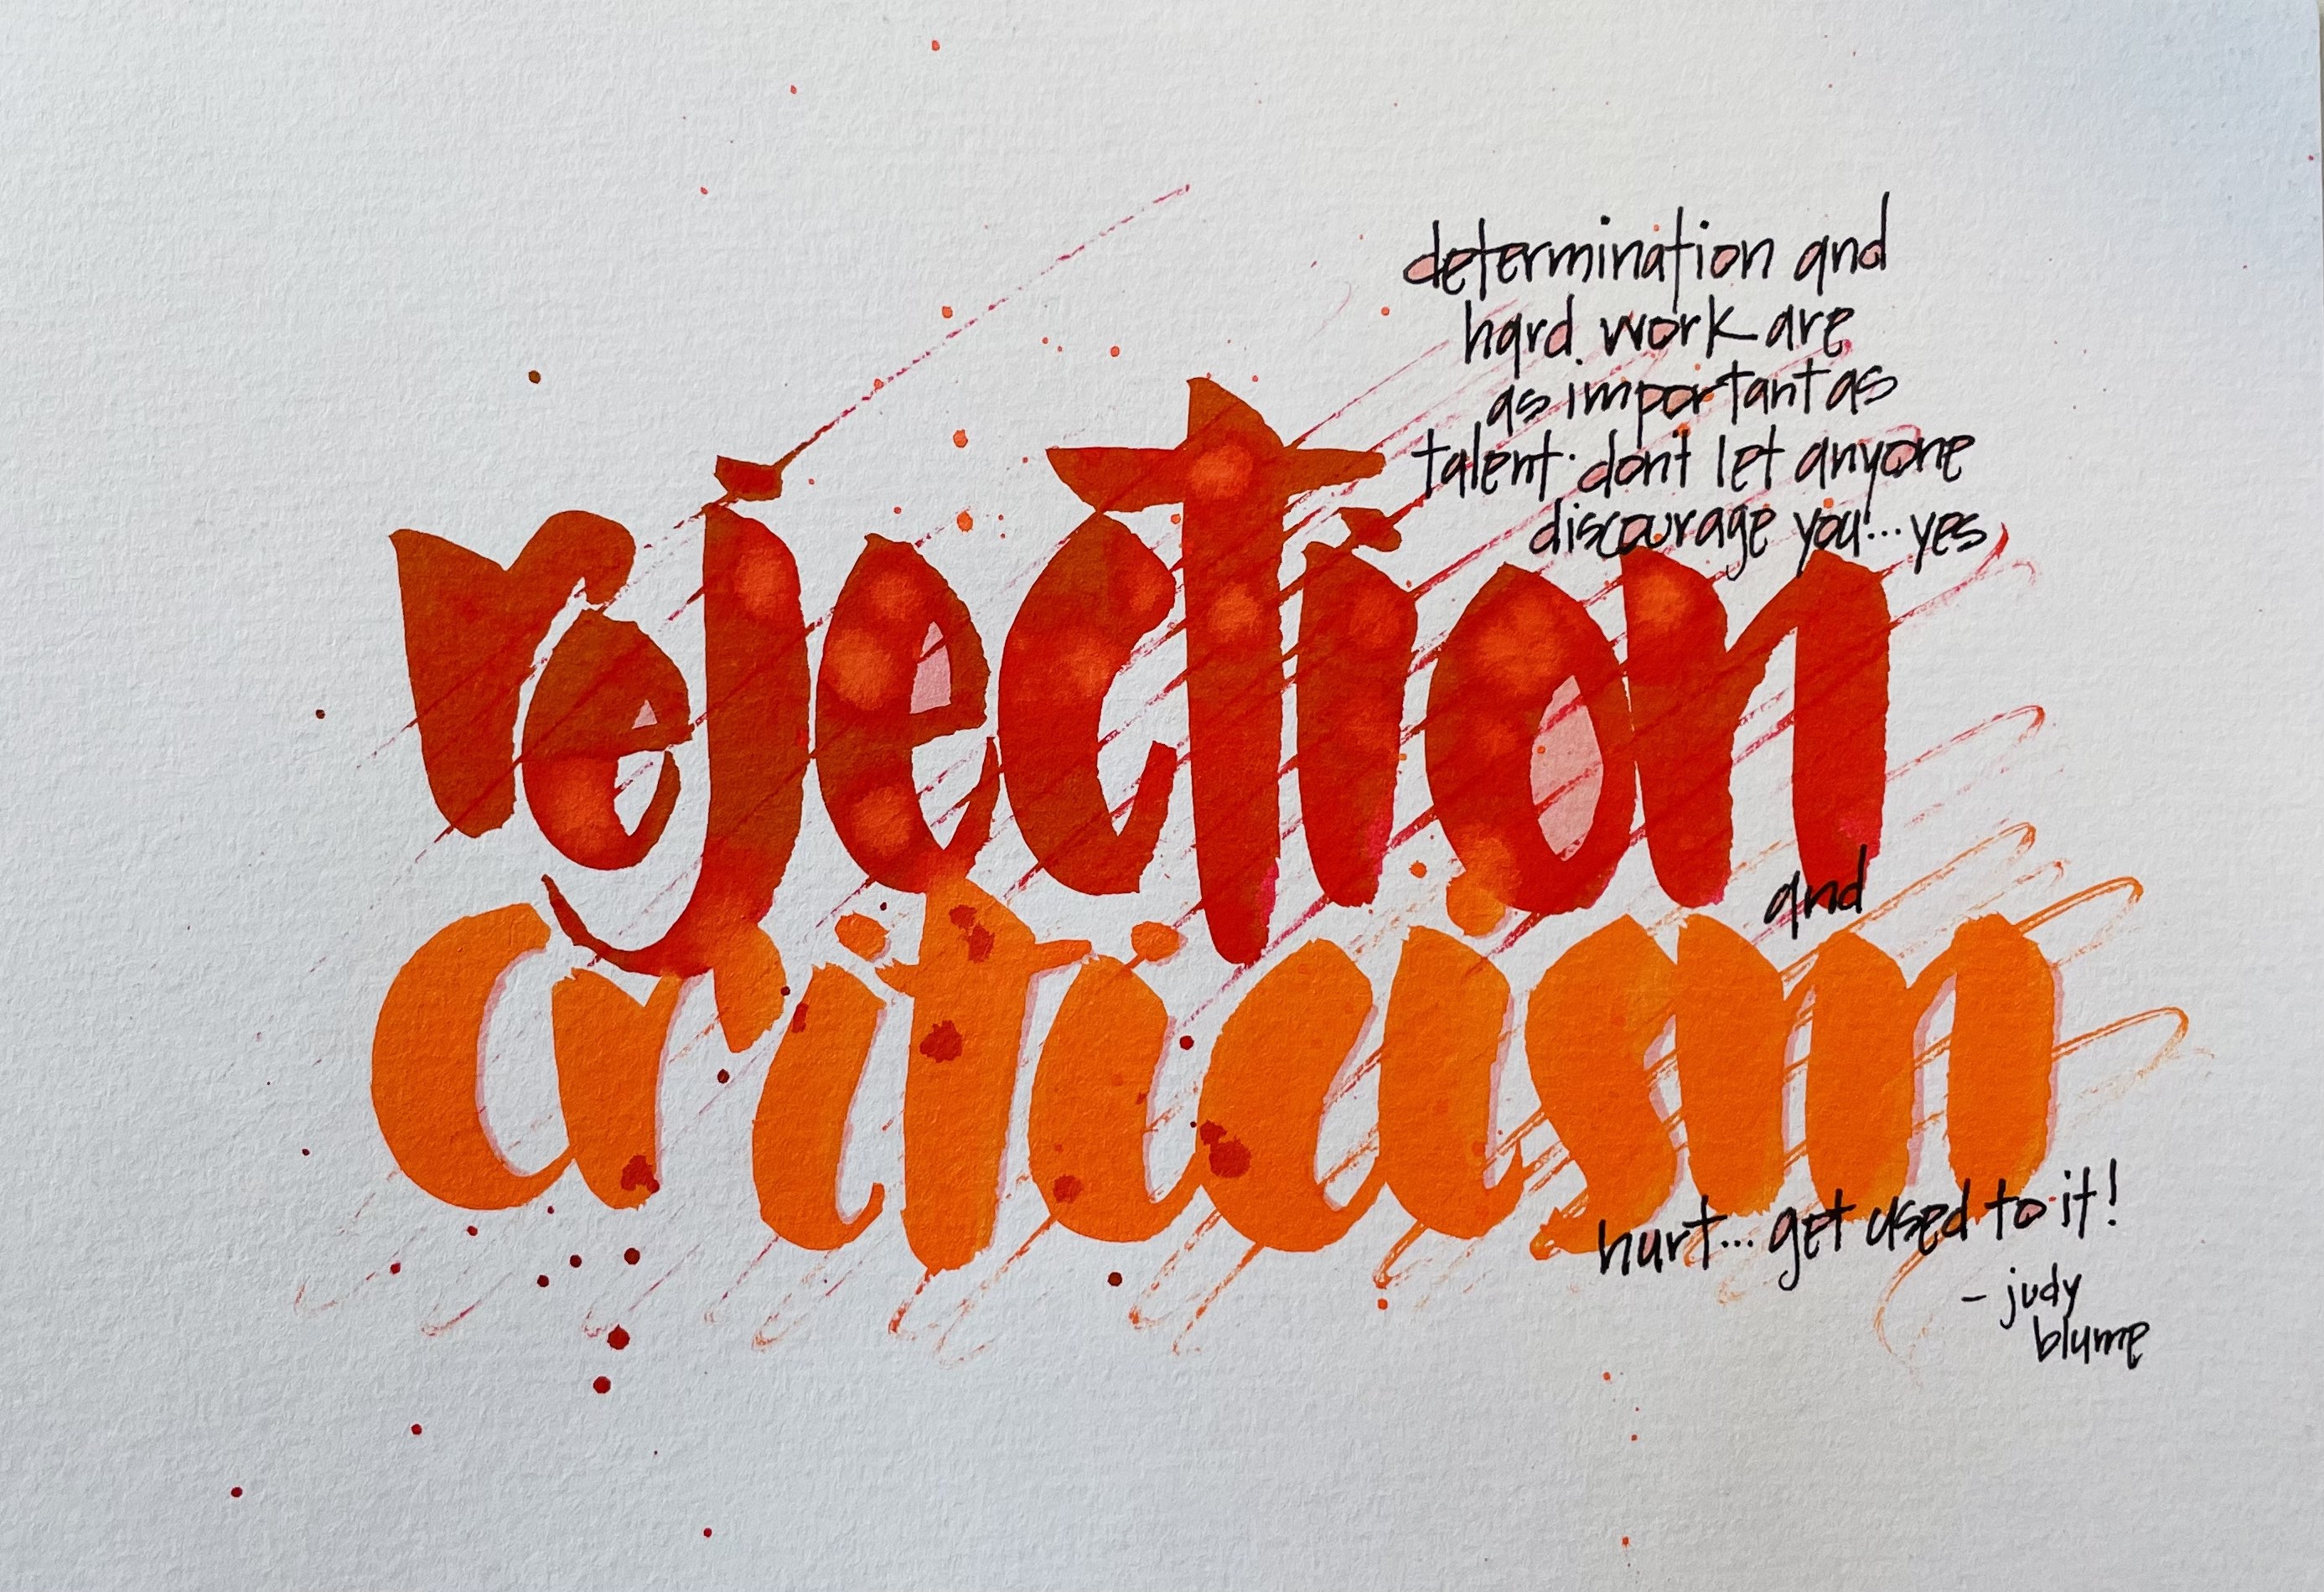 determination and
hard work are
as important as
talent. don't let anyone
discourage you... yes
rejection
and
criticism
hurt... get used to it!
- judy
blume